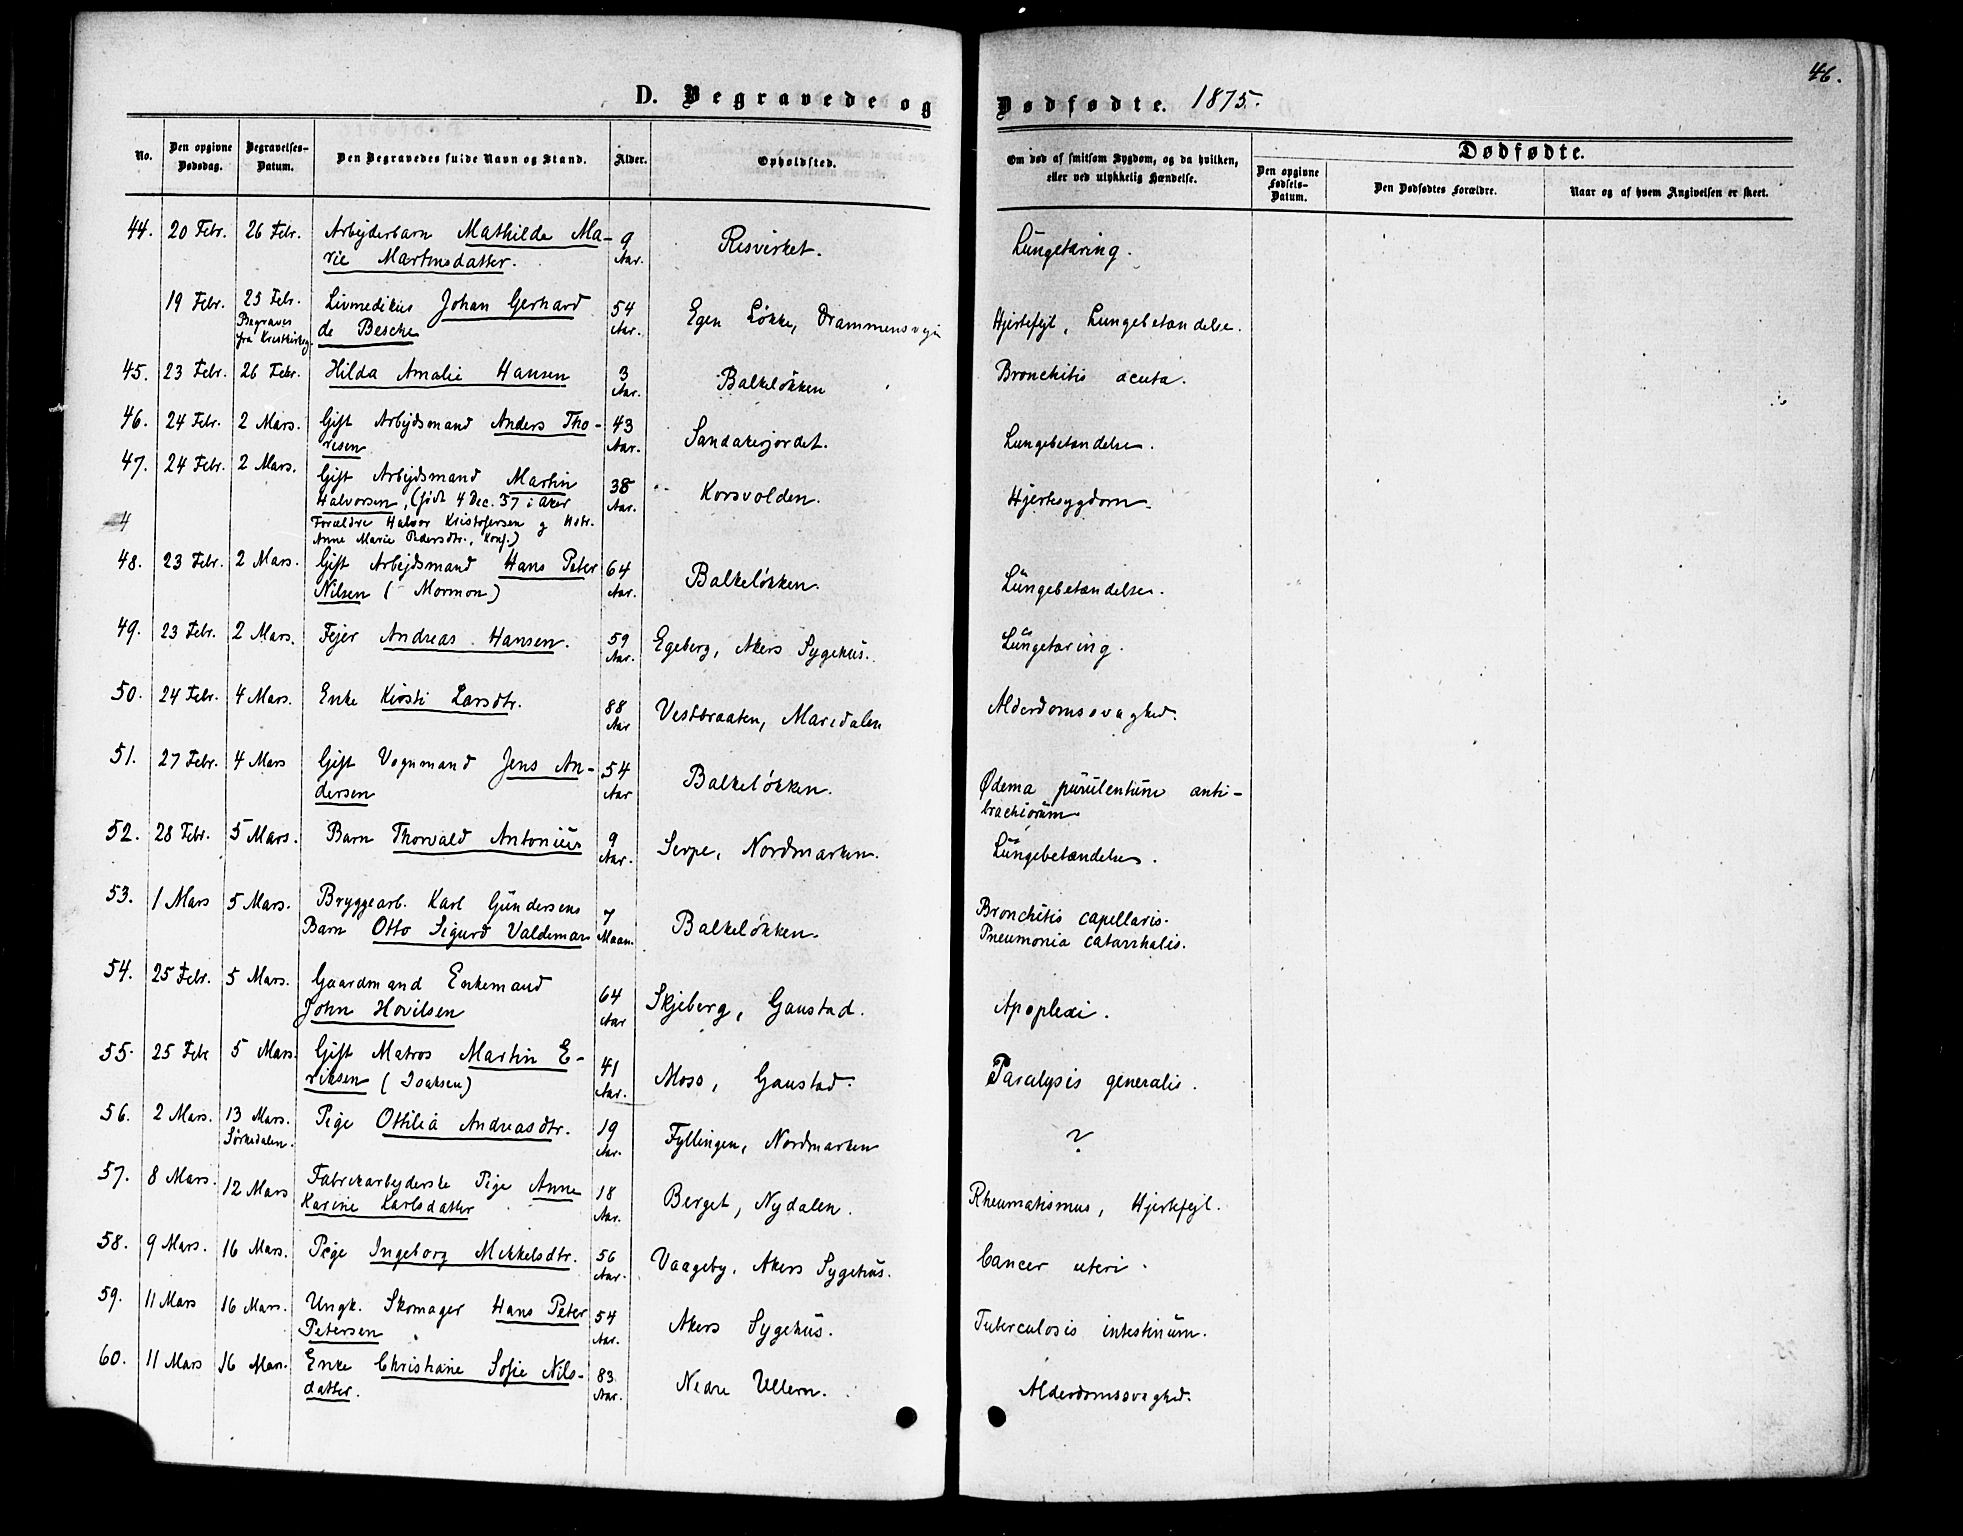 46.
D. Begravede og Dødfødte. 1875.
No.
Den opgivne Dødsdag.
Begravelses-Datum.
Den Begravedes fulde Navn og Stand.
Alder.
Opholdsted.
Om død af smitsom Sygdom, og da hvilken, eller ved ulykkelig Hændelse.
Dødfødte.
Den opgivne Fødsels-Datum.
Den Dødfødtes Forældre.
Naar og af hvem Angivelsen er skeet.
44. 20 Febr. 26 Febr. Arbejderbarn Mathilde Ma- 9 Risvirket. Lungetæring.
rie Martinsdatter. Aar.
19 Febr. 25 Febr. Livmedikus Johan Gerhard 54 Egen Løkke, Drammensvejn Hjertefejl, Lungebetændelse.
Begraves fra Kristkirkeg. de Besche Aar.
45. 23 Febr. 26 Febr. Hilda Amalie Hansen 3 Aar. Balkeløkken Bronchitis acuta.
46. 24 Febr. 2 Mars. Gift Arbejdsmand Anders Tho- 43 Sandakerjordet. Lungebetændelse.
resen Aar.
47. 24 Febr. 2 Mars. Gift Arbejdsmand Martin 38 Korsvolden. Hjertesygdom.
Halvorsen, (født 4 Dec. 37 i Aker Aar.
Forældre Halvor Kristofersen og Hstr.
4 Anne Marie Pedersdtr., Konf.)
48. 23 Febr. 2 Mars. Gift Arbejdsmand Hans Peter 64 Balkeløkken. Lungebetændelse.
Nilsen (Mormon) Aar.
49. 23 Febr. 2 Mars. Fejer Andreas Hansen. 59 Aar. Egeberg, Akers Sygehus. Lungetæring.
50. 24 Febr. 4 Mars. Enke Kirsti Larsdtr. 88 Aar Vestbraaten, Maridalen Alderdomssvaghed.
51. 27 Febr. 4 Mars Gift Vognmand Jens An- 54 Balkeløkken. Ødema purulentum anti-
dersen Aar brachiorum
52. 28 Febr. 5 Mars. Barn Thorvald Antonius 9 Aar. Serpe, Nordmarken. Lungebetændelse.
53. 1 Mars 5 Mars. Bryggearb. Karl Gundersens 7 Balkeløkken. Bronchitis capellaris.
Barn Otto Sigurd Valdemar Maan. Pneumonia catarrhalis.
54. 25 Febr. 5 Mars. Gaardmand Enkemand 64 Skjeberg, Gaustad. Apoplexi.
John Hovilsen Aar
55. 25 Febr 5 Mars. Gift Matros Martin E- 41 Moss, Gaustad. Paralysis generalis.
riksen (Isaksen) Aar.
56. 2 Mars. 13 Mars. Pige Ottilia Andreasdtr. 19 Fyllingen, Nordmarken ?
Sørkedalen. Aar.
57. 8 Mars. 12 Mars Fabrikarbejderske Pige Anne 18 Berget, Nydalen. Rheumatismus, Hjertefejl.
Karine Karlsdatter Aar.
58. 9 Mars. 16 Mars. Pige Ingeborg Mikkelsdtr. 56 Aar. Vaageby, Akers Sygehus. Cancer uteri.
59. 11 Mars 16 Mars. Ungk. Skomager Hans Peter 54 Akers Sygehus. Tuberculosis intestinum.
Petersen Aar.
60. 11 Mars 16 Mars. Enke Christiane Sofie Nils- 83 Nedre Ullern. Alderdomssvaghed.
datter. Aar.